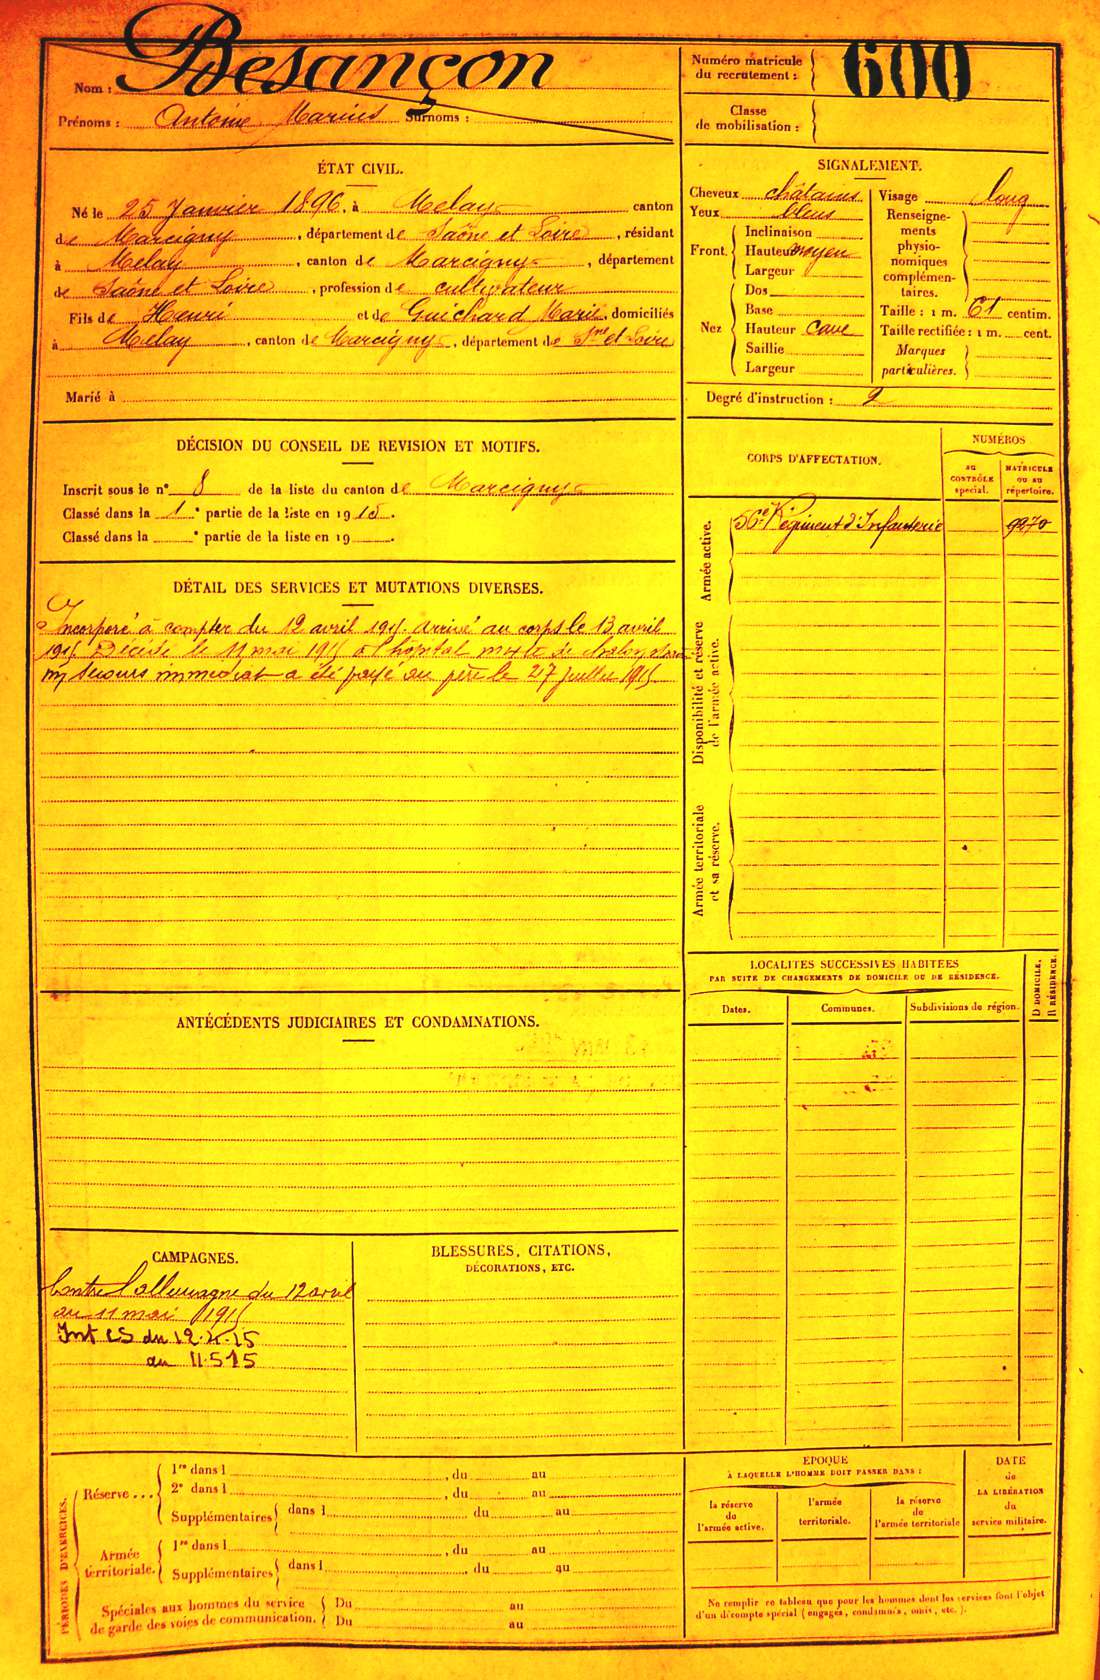 Nom : Besançon
Prénoms : Antoine Marius Surnoms :
Numéro matricule
du recrutement : 600
Classe
de mobilisation :
ÉTAT CIVIL.
Né le 25 Janvier 1896, à Melay canton
de Marcigny, département de Saône et Loire, résidant
à Melay, canton de Marcigny, département
de Saône et Loire, profession de cultivateur
Fils de Henri et de Guichard Marie, domiciliés
à Melay, canton de Marcigny, département de Sne et Loire
Marié à
SIGNALEMENT.
Cheveux châtains
Yeux bleus
Front.
Inclinaison
Hauteur moyen
Largeur
Nez
Dos
Base
Hauteur cave
Saillie
Largeur
Visage long
Renseigne-
ments
physio-
nomiques
complémen-
taires.
Taille : 1 m. 61 centim.
Taille rectifiée : 1 m. cent.
Marques
particulières.
Degré d'instruction : 2
DÉCISION DU CONSEIL DE REVISION ET MOTIFS.
Inscrit sous le n° 8 de la liste du canton de Marcigny
Classé dans la 1e partie de la liste en 1915.
Classé dans la e partie de la liste en 19 .
CORPS D'AFFECTATION.
NUMÉROS
AU
CONTRÔLE
spécial.
MATRICULE
OU AU
répertoire.
Armée active.
56e Régiment d'Infanterie 9270
Disponibilité et réserve
de l'armée active.
Armée territoriale
et sa réserve.
DÉTAIL DES SERVICES ET MUTATIONS DIVERSES.
Incorporé à compter du 12 avril 1915. arrivé au corps le 13 avril
1915 Décédé le 11 mai 1915 à l'hôpital mixte de
secours immédiat a été payé au père le 27 juillet 1915
LOCALITÉS SUCCESSIVES HABITÉES
PAR SUITE DE CHANGEMENTS DE DOMICILE OU DE RÉSIDENCE.
Dates.
Communes.
Subdivisions de région.
D DOMICILE.
R RÉSIDENCE.
ANTÉCÉDENTS JUDICIAIRES ET CONDAMNATIONS.
CAMPAGNES.
Contre l'allemagne du 12 avril
au 11 mai 1915
Int CS du 12.4.15
au 11.5.15
BLESSURES, CITATIONS,
DÉCORATIONS, ETC.
PÉRIODES D'EXERCICES.
Réserve ...
1re dans l , du au
2e dans l , du au
Supplémentaires dans l du au
Armée
territoriale.
1re dans l , du au
Supplémentaires dans l du au
Spéciales aux hommes du service
de garde des voies de communication.
Du au
Du au
ÉPOQUE
À LAQUELLE L'HOMME DOIT PASSER DANS :
la réserve
de
l'armée active.
l'armée
territoriale.
la réserve
de
l'armée territoriale
DATE
de
LA LIBÉRATION
du
service militaire.
Ne remplir ce tableau que pour les hommes dont les services font l'objet
d'un décompte spécial (engagés, condamnés, omis, etc.).